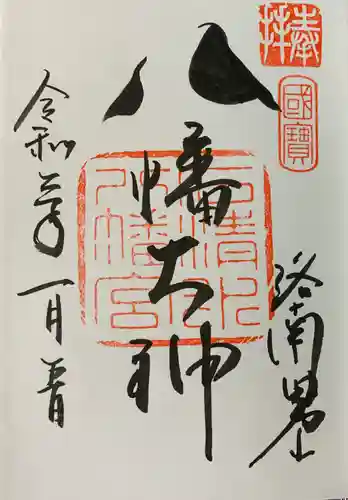 奉拝
國寶
洛南男山
八幡大神
石清水八幡宮
令和二年
一月五日